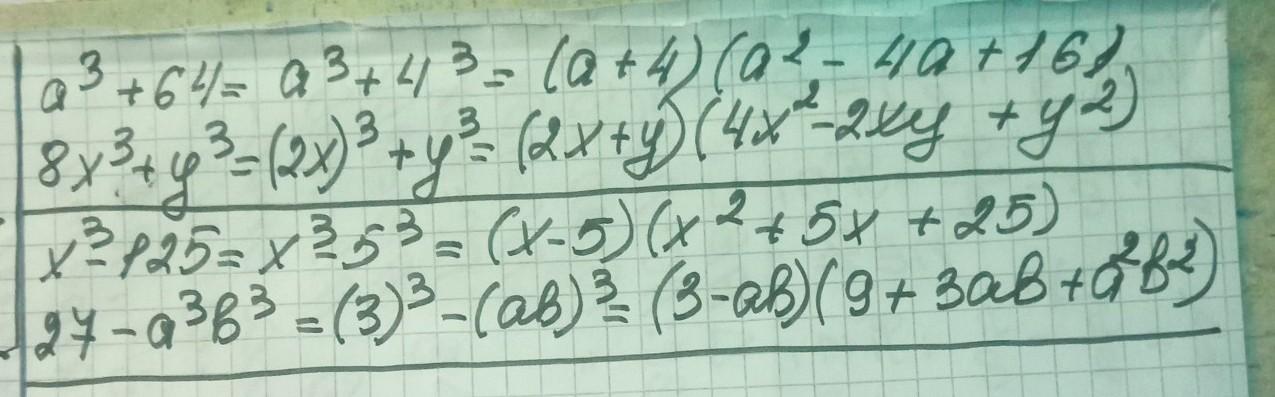 a³+64= a³+4³= (a+4)(a²-4a+16)
8x³+y³=(2x)³+y³= (2x+y)(4x²-2xy+y²)
x³-125= x³-5³= (x-5)(x²+5x+25)
27-a³b³=(3)³-(ab)³= (3-ab)(9+3ab+a²b²)